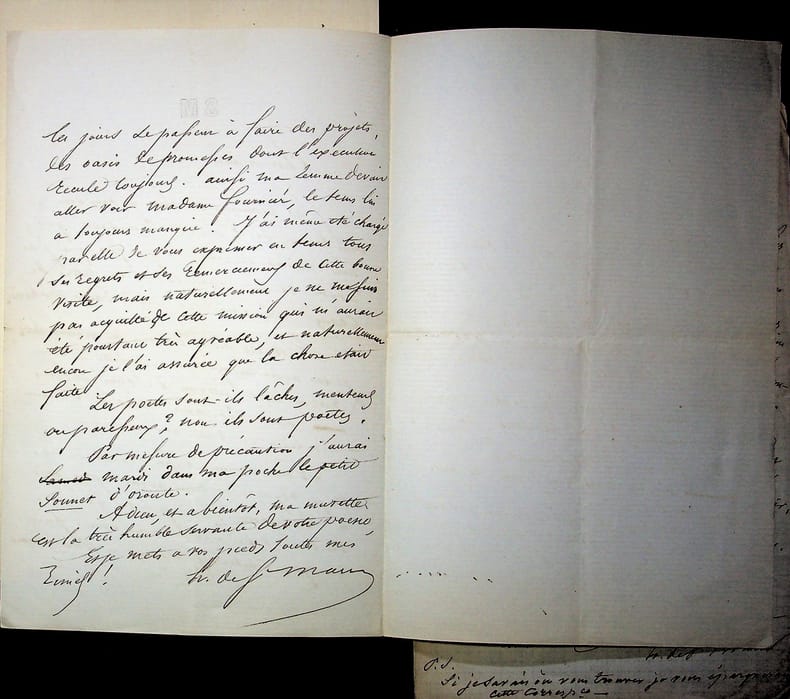 les jours se passent à faire des projets,
des oasis de promesses dont l'exécution
recule toujours. ainsi ma femme devait
aller voir madame fournier, le tems lui
a toujours manqué. J'ai même été chargé
par elle de vous exprimer en tems tous
ses regrets et ses remerciemens de cette bonne
visite, mais naturellement je ne me suis
pas acquitté de cette mission qui m'aurait
été pourtant très agréable, et naturellement
encore je l'ai assurée que la chose était
faite
Les poëtes sont-ils lâches, menteurs
ou paresseux? non ils sont poëtes.
Par mesure de précaution j'aurai
mardi dans ma poche le petit
Sonnet
Adieu, et a bientôt, ma musette
est la très humble servante de votre
Et je mets a vos pieds toutes mes
Rimes! h. de St maur
P.S.
Si je savais où vous trouver je vous
cette